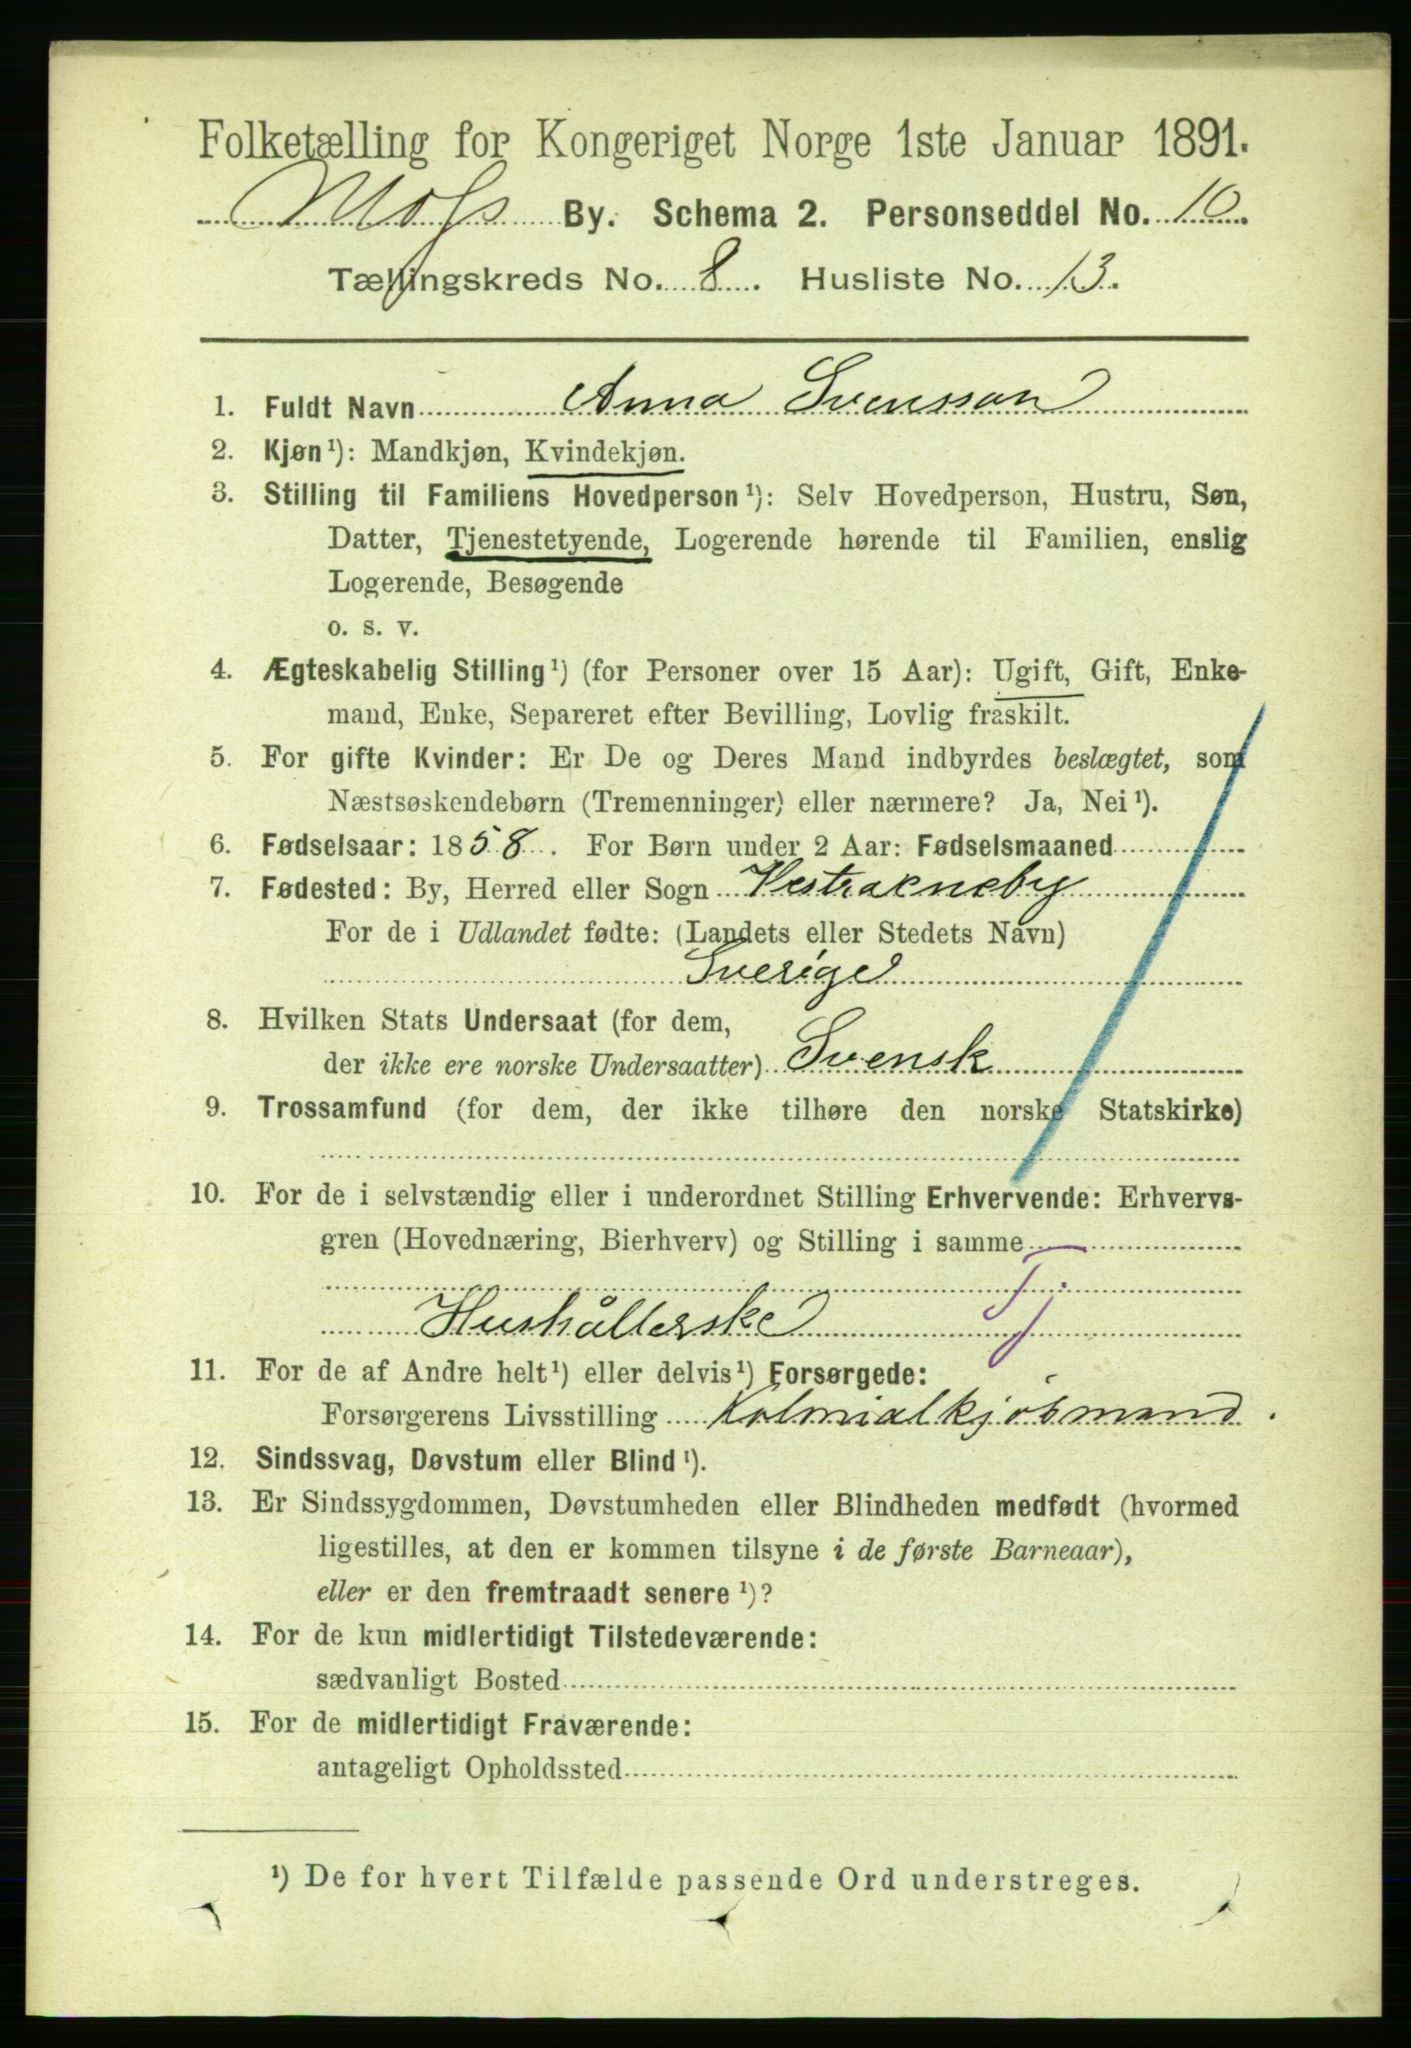 Folketælling for Kongeriget Norge 1ste Januar 1891.
Moss By. Schema 2. Personseddel No. 10.
Tællingskreds No. 8. Husliste No. 13.
1. Fuldt Navn Anna Svensson
2. Kjøn¹): Mandkjøn, Kvindekjøn.
3. Stilling til Familiens Hovedperson¹): Selv Hovedperson, Hustru, Søn,
Datter, Tjenestetyende, Logerende hørende til Familien, enslig
Logerende, Besøgende
o. s. v.
4. Ægteskabelig Stilling¹) (for Personer over 15 Aar): Ugift, Gift, Enke-
mand, Enke, Separeret efter Bevilling, Lovlig fraskilt.
5. For gifte Kvinder: Er De og Deres Mand indbyrdes beslægtet, som
Næstsøskendebørn (Tremenninger) eller nærmere? Ja, Nei¹).
6. Fødselsaar: 1858. For Børn under 2 Aar: Fødselsmaaned
7. Fødested: By, Herred eller Sogn Vestraeneby
For de i Udlandet fødte: (Landets eller Stedets Navn)
Sverige
8. Hvilken Stats Undersaat (for dem,
der ikke ere norske Undersaatter) Svensk
9. Trossamfund (for dem, der ikke tilhøre den norske Statskirke)
10. For de i selvstændig eller i underordnet Stilling Erhvervende: Erhvervs-
gren (Hovednæring, Bierhverv) og Stilling i samme
Tj.
Hushållerske
11. For de af Andre helt¹) eller delvis¹) Forsørgede:
Forsørgerens Livsstilling Kolonialkjöbmand.
12. Sindssvag, Døvstum eller Blind¹).
13. Er Sindssygdommen, Døvstumheden eller Blindheden medfødt (hvormed
ligestilles, at den er kommen tilsyne i de første Barneaar),
eller er den fremtraadt senere¹)?
14. For de kun midlertidigt Tilstedeværende:
sædvanligt Bosted
15. For de midlertidigt Fraværende:
antageligt Opholdssted
¹) De for hvert Tilfælde passende Ord understreges.